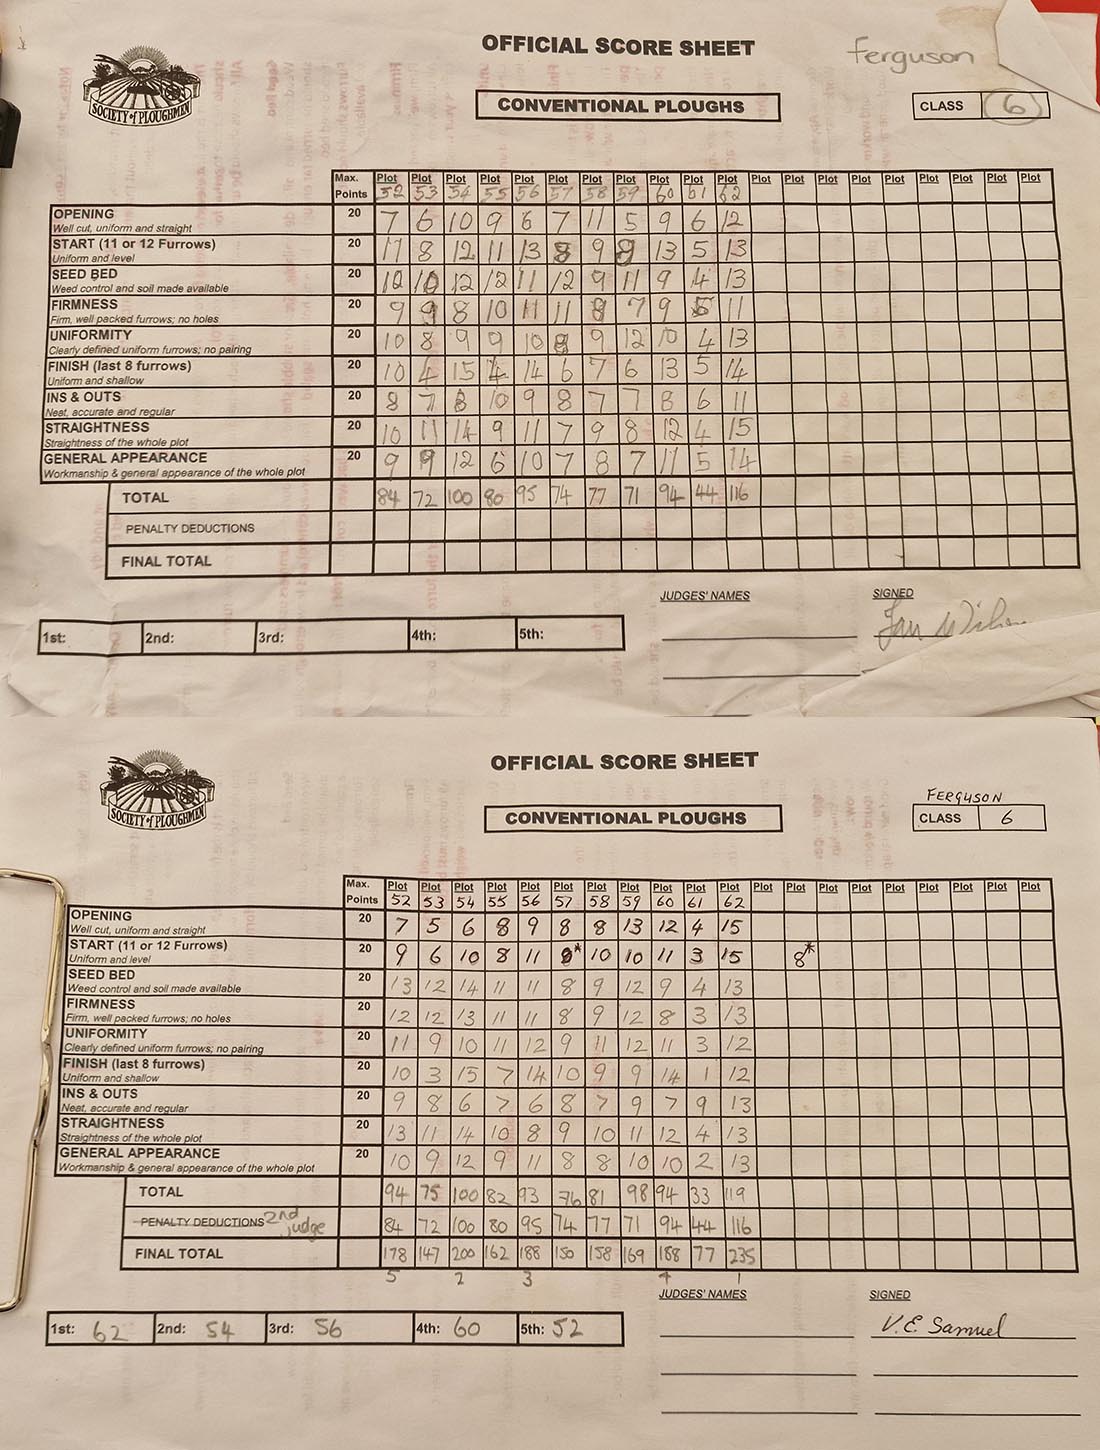 OFFICIAL SCORE SHEET
Ferguson
SOCIETY of PLOUGHMEN
CONVENTIONAL PLOUGHS
CLASS 6
Max. Points Plot 52 Plot 53 Plot 54 Plot 55 Plot 56 Plot 57 Plot 58 Plot 59 Plot 60 Plot 61 Plot 62 Plot Plot Plot Plot Plot Plot Plot Plot Plot
OPENING 20 7 6 10 9 6 7 11 5 9 6 12
Well cut, uniform and straight
START (11 or 12 Furrows) 20 11 8 12 11 13 8 9 9 13 5 13
Uniform and level
SEED BED 20 10 10 12 12 11 12 9 11 9 4 13
Weed control and soil made available
FIRMNESS 20 9 9 8 10 11 11 8 7 9 5 11
Firm, well packed furrows; no holes
UNIFORMITY 20 10 8 9 9 10 8 9 12 10 4 13
Clearly defined uniform furrows; no pairing
FINISH (last 8 furrows) 20 10 4 15 4 14 6 7 6 13 5 14
Uniform and shallow
INS & OUTS 20 8 7 8 10 9 8 7 7 8 6 11
Neat, accurate and regular
STRAIGHTNESS 20 10 11 14 9 11 7 9 8 12 4 15
Straightness of the whole plot
GENERAL APPEARANCE 20 9 9 12 6 10 7 8 7 11 5 14
Workmanship & general appearance of the whole plot
TOTAL 84 72 100 80 95 74 77 71 94 44 116
PENALTY DEDUCTIONS
FINAL TOTAL
JUDGES' NAMES SIGNED
1st: 2nd: 3rd: 4th: 5th:
Ian Wilson
OFFICIAL SCORE SHEET
SOCIETY of PLOUGHMEN
FERGUSON
CONVENTIONAL PLOUGHS
CLASS 6
Max. Points Plot 52 Plot 53 Plot 54 Plot 55 Plot 56 Plot 57 Plot 58 Plot 59 Plot 60 Plot 61 Plot 62 Plot Plot Plot Plot Plot Plot Plot Plot Plot
OPENING 20 7 5 6 8 9 8 8 13 12 4 15
Well cut, uniform and straight
START (11 or 12 Furrows) 20 9 6 10 8 11 8* 10 10 11 3 15 8*
Uniform and level
SEED BED 20 13 12 14 11 11 8 9 12 9 4 13
Weed control and soil made available
FIRMNESS 20 12 12 13 11 11 8 9 12 8 3 13
Firm, well packed furrows; no holes
UNIFORMITY 20 11 9 10 11 12 9 11 12 11 3 12
Clearly defined uniform furrows; no pairing
FINISH (last 8 furrows) 20 10 3 15 7 14 10 9 9 14 1 12
Uniform and shallow
INS & OUTS 20 9 8 6 7 6 8 7 9 7 9 13
Neat, accurate and regular
STRAIGHTNESS 20 13 11 14 10 8 9 10 11 12 4 13
Straightness of the whole plot
GENERAL APPEARANCE 20 10 9 12 9 11 8 8 10 10 2 13
Workmanship & general appearance of the whole plot
TOTAL 94 75 100 82 93 76 81 98 94 33 119
PENALTY DEDUCTIONS 2nd judge 84 72 100 80 95 74 77 71 94 44 116
FINAL TOTAL 178 147 200 162 188 150 158 169 188 77 235
5 2 3 4 1
JUDGES' NAMES SIGNED
1st: 62 2nd: 54 3rd: 56 4th: 60 5th: 52
V.E. Samuel